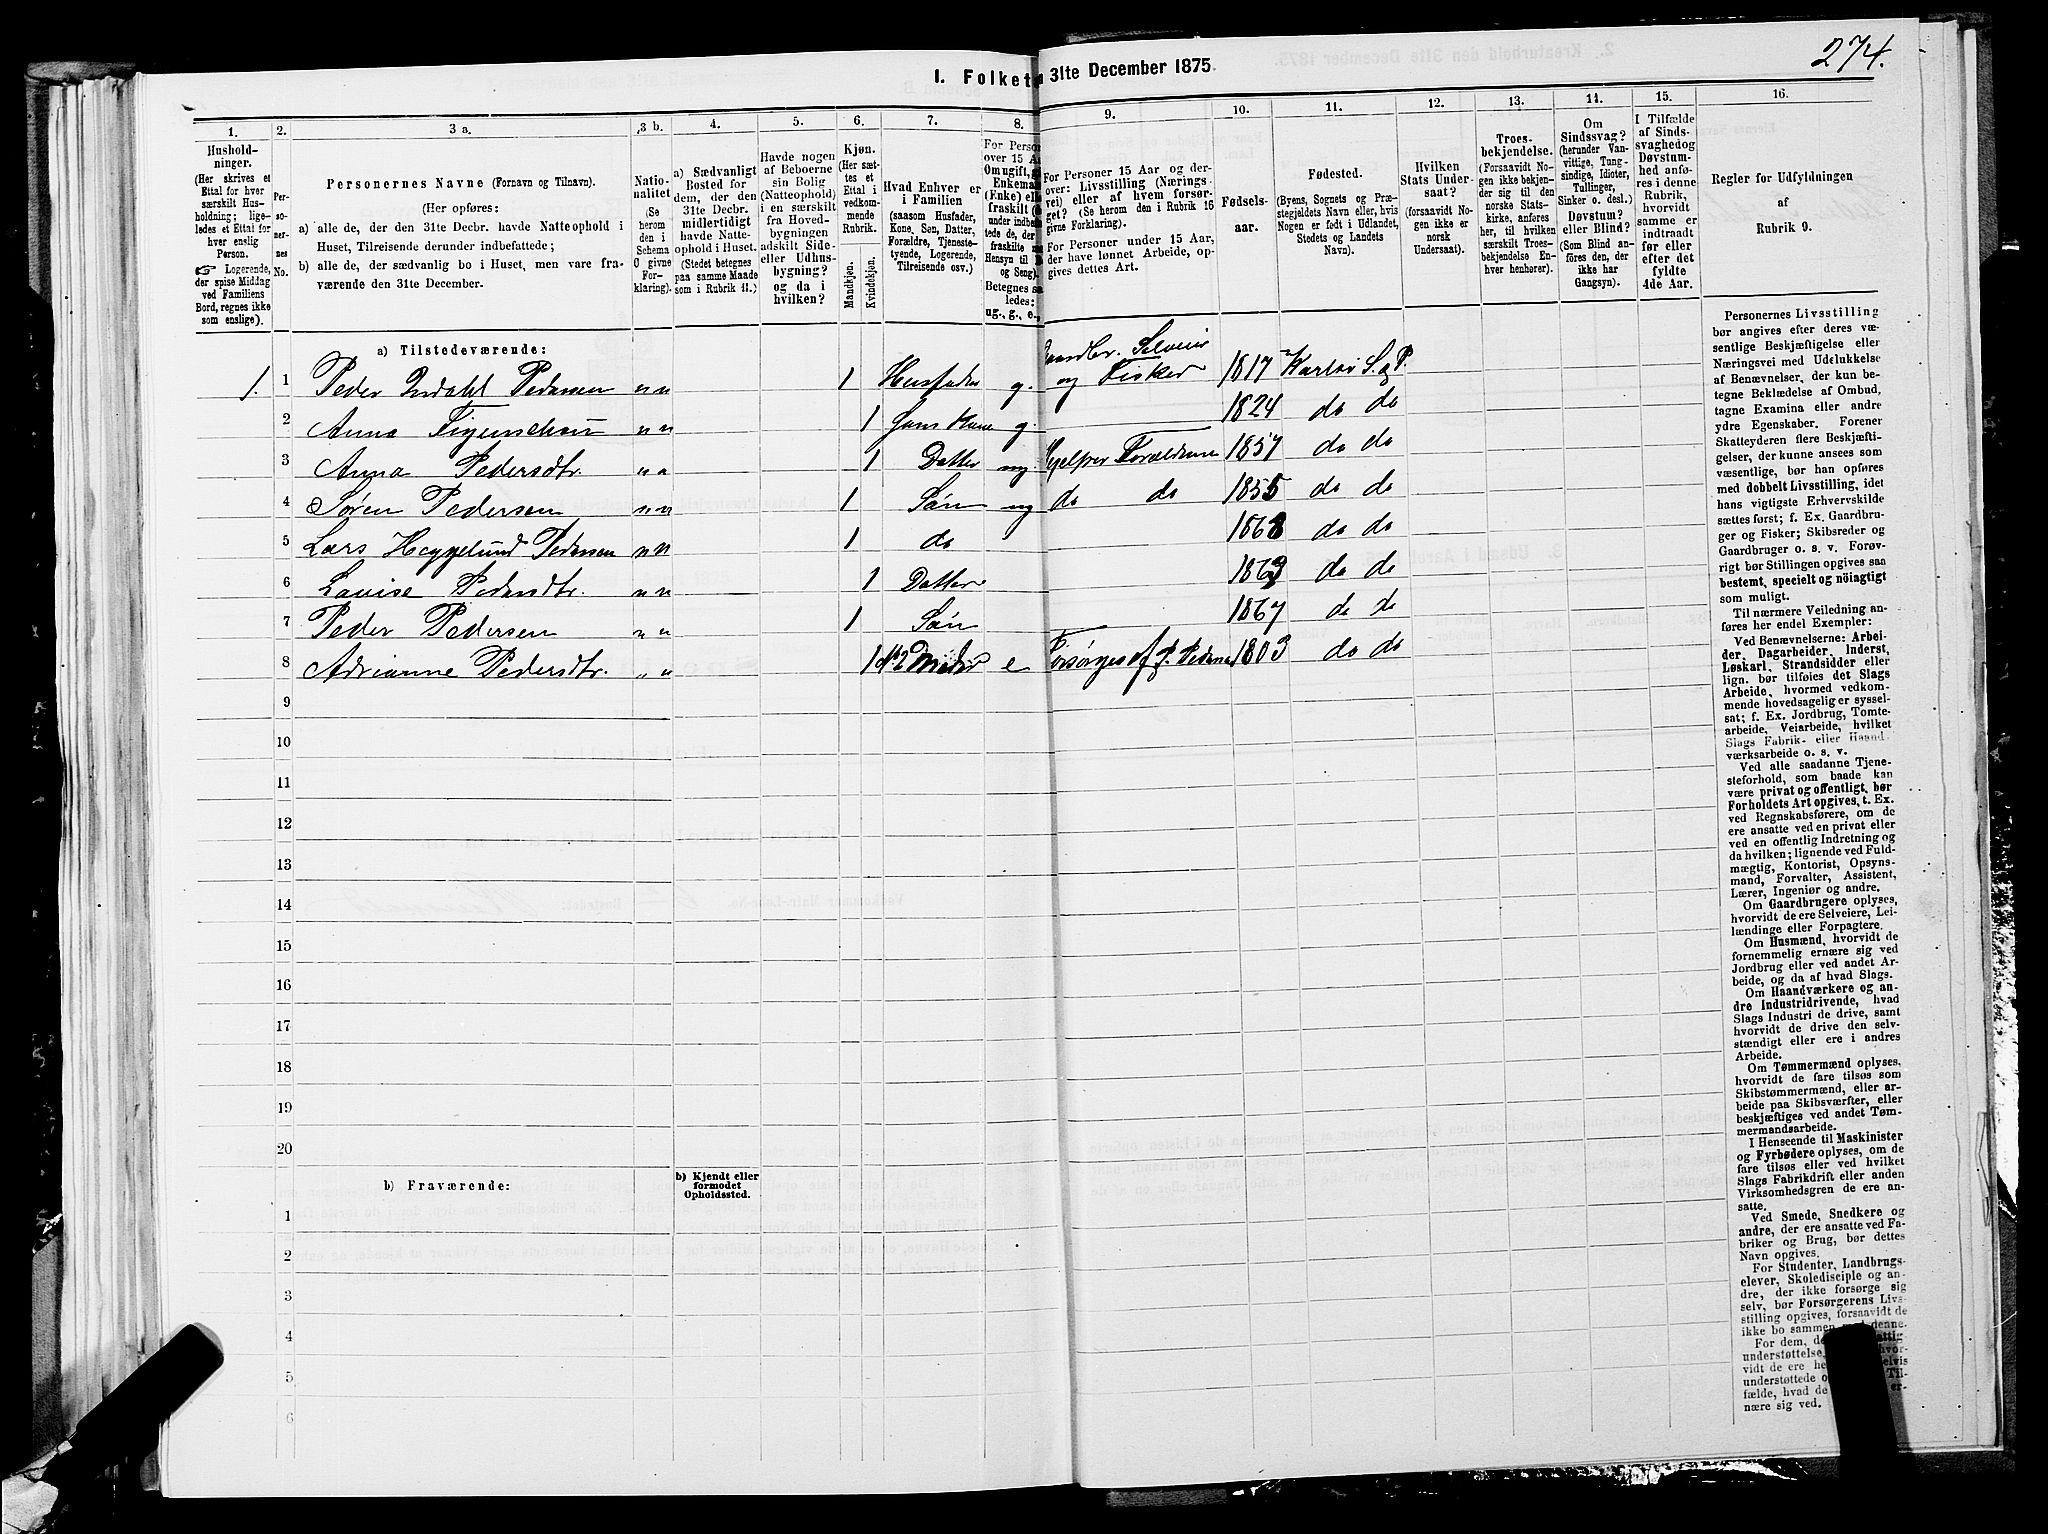 274.
I. Folket
31te December 1875.
1. 2. 3 a. 3 b. 4. 5. 6. 7. 8. 9. 10. 11. 12. 13. 14. 15. 16.
Hushold-
ninger.
(Her skrives et
Ettal for hver
særskilt Hus-
holdning; lige-
ledes et Ettal for
hver enslig
Person.
☞ Logerende,
der spise Middag
ved Familiens
Bord, regnes ikke
som enslige).
Per-
so-
ner-
nes
No.
Personernes Navne (Fornavn og Tilnavn).
(Her opføres:
a) alle de, der den 31te Decbr. havde Natteophold i
Huset, Tilreisende derunder indbefattede;
b) alle de, der sædvanlig bo i Huset, men vare fra-
værende den 31te December.
Natio-
nalitet
(Se
herom
den i
Schema
O givne
For-
klaring).
a) Sædvanligt
Bosted for
dem, der den
31te Decbr.
midlertidigt
havde Natte-
ophold i Huset.
(Stedet betegnes
paa samme Maade
som i Rubrik 11.)
Havde nogen
af Beboerne
sin Bolig
(Natteophold)
i en særskilt
fra Hoved-
bygningen
adskilt Side-
eller Udhus-
bygning?
og da i
hvilken?
Kjøn.
(Her sæt-
tes et
Ettal i
vedkom-
mende
Rubrik.
Mandkjøn.
Kvindekjøn.
Hvad Enhver er
i Familien
(saasom Husfader,
Kone, Søn, Datter,
Forældre, Tjeneste-
tyende, Logerende,
Tilreisende osv.)
For Person
over 15 Aa
Om ugift, g
Enkeman
(Enke) ell
fraskilt (
under indbe
tede de, der
fraskilte m
Hensyn til
og Seng).
Betegnes sa
ledes:
ug., g., e.,
For Personer 15 Aar og der-
over: Livsstilling (Nærings-
vei) eller af hvem forsør-
get? (Se herom den i Rubrik 16
givne Forklaring.)
For Personer under 15 Aar,
der have lønnet Arbeide, op-
gives dettes Art.
Fødsels-
aar.
Fødested.
(Byens, Sognets og Præ-
stegjeldets Navn eller, hvis
Nogen er født i Udlandet,
Stedets og Landets
Navn).
Hvilken
Stats Under-
saat?
(forsaavidt No-
gen ikke er
norsk
Undersaat).
Troes-
bekjendelse.
(Forsaavidt No-
gen ikke bekjen-
der sig til den
norske Stats-
kirke, anføres
her, til hvilken
særskilt Troes-
bekjendelse En-
hver henhører).
Om
Sindssvag?
(herunder Van-
vittige, Tung-
sindige, Idioter,
Tullinger,
Sinker o. desl.)
Døvstum?
eller Blind?
(Som Blind an-
føres den, der
ikke har
Gangsyn).
I Tilfælde
af Sinds-
svaghed og
Døvstum-
hed anfø-
res i denne
Rubrik,
hvorvidt
samme er
indtraadt
før eller
efter det
fyldte
4de Aar.
Regler for Udfyldningen
af
Rubrik 9.
a) Tilstedeværende:
1. 1 Peder Indahl Pedersen n n 1 Husfader g. Gaardbr. Selveier
og Fisker 1817 Karlsø S. og P.
2 Anna Figenschou n n 1 Hans Kone g. 1824 do do
3 Anna Pedersdtr. n n 1 Datter ug Hjelper Forældrene 1857 do do
4 Søren Pedersen n n 1 Søn ug do do 1855 do do
5 Lars Heggelund Pedersen n n 1 do do do
6 Lovise Pedersdtr. n n 1 Datter do do
7 Peder Pedersen n n 1 Søn 1867 do do
8 Adrianne Pedersdtr. „ n 1 Moder e Forsørges af P. Pedersen 1803 do do
9
10
11
12
13
14
15
16
17
18
19
20
b) Fraværende:
b) Kjendt eller
formodet
Opholdssted.
1
2
3
4
5
6
Personernes Livsstilling
bør angives efter deres væ-
sentlige Beskjæftigelse eller
Næringsvei med Udelukkelse
af Benævnelser, der kun be-
tegne Beklædelse af Ombud,
tagne Examina eller andre
ydre Egenskaber. Forener
Skatteyderen flere Beskjæfti-
gelser, der kunne ansees som
væsentlige, bør han opføres
med dobbelt Livsstilling, idet
hans vigtigste Erhvervskilde
sættes først; f. Ex. Gaardbru-
ger og Fisker; Skibsreder og
Gaardbruger o. s. v. Forøv-
rigt bør Stillingen opgives saa
bestemt, specielt og nöiagtigt
som muligt.
Til nærmere Veiledning an-
føres her endel Exempler:
Ved Benævnelserne: Arbei-
der, Dagarbeider, Inderst,
Løskarl, Strandsidder eller
lign. bør tilføies det Slags
Arbeide, hvormed vedkom-
mende hovedsagelig er syssel-
sat; f. Ex. Jordbrug, Tomte-
arbeide, Veiarbeide, hvilket
Slags Fabrik- eller Haand-
værksarbeide o. s. v.
Ved alle saadanne Tjene-
steforhold, som baade kan
være privat og offentligt, bør
Forholdets Art opgives, t. Ex.
ved Regnskabsførere, om de
ere ansatte ved en privat eller
ved en offentlig Indretning og
da hvilken; lignende ved Fuld-
mægtig, Kontorist, Opsyns-
mand, Forvalter, Assistent,
Lærer, Ingeniør og andre.
Om Gaardbrugere oplyses,
hvorvidt de ere Selveiere, Lei-
lændinge eller Forpagtere.
Om Husmænd, hvorvidt de
fornemmelig ernære sig ved
Jordbrug eller ved andet Ar-
beide, og da af hvad Slags.
Om Haandværkere og an-
dre Industridrivende, hvad
Slags Industri de drive, samt
hvorvidt de drive den selv-
stændigt eller ere i andres
Arbeide.
Om Tømmermænd oplyses,
hvorvidt de fare tilsøs som
Skibstømmermænd, eller ar-
beide paa Skibsværfter, eller
beskjæftiges ved andet Tøm-
mermandsarbeide.
I Henseende til Maskinister
og Fyrbødere oplyses, om de
fare tilsøs eller ved hvilket
Slags Fabrikdrift eller anden
Virksomhedsgren de ere an-
satte.
Ved Smede, Snedkere og
andre, der ere ansatte ved Fa-
briker og Brug, bør dettes
Navn opgives.
For Studenter, Landbrugs-
elever, Skoledisciple og an-
dre, der ikke forsørge sig
selv, bør Forsørgerens Livs-
stilling opgives, forsaavidt de
ikke bo sammen med denne.
For dem, d
understøttelse,
vidt de ere he
understøttede o
fælde, hvad de
nære sig ved.